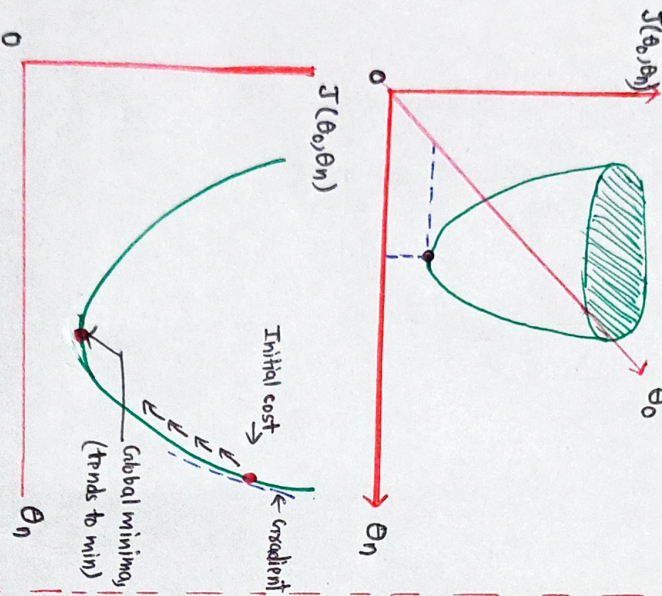 J(θ₀,θn)
0
θ₀
θn
J(θ₀,θn)
0
Initial cost
Gradient
Global minima,
(tends to min)
θn